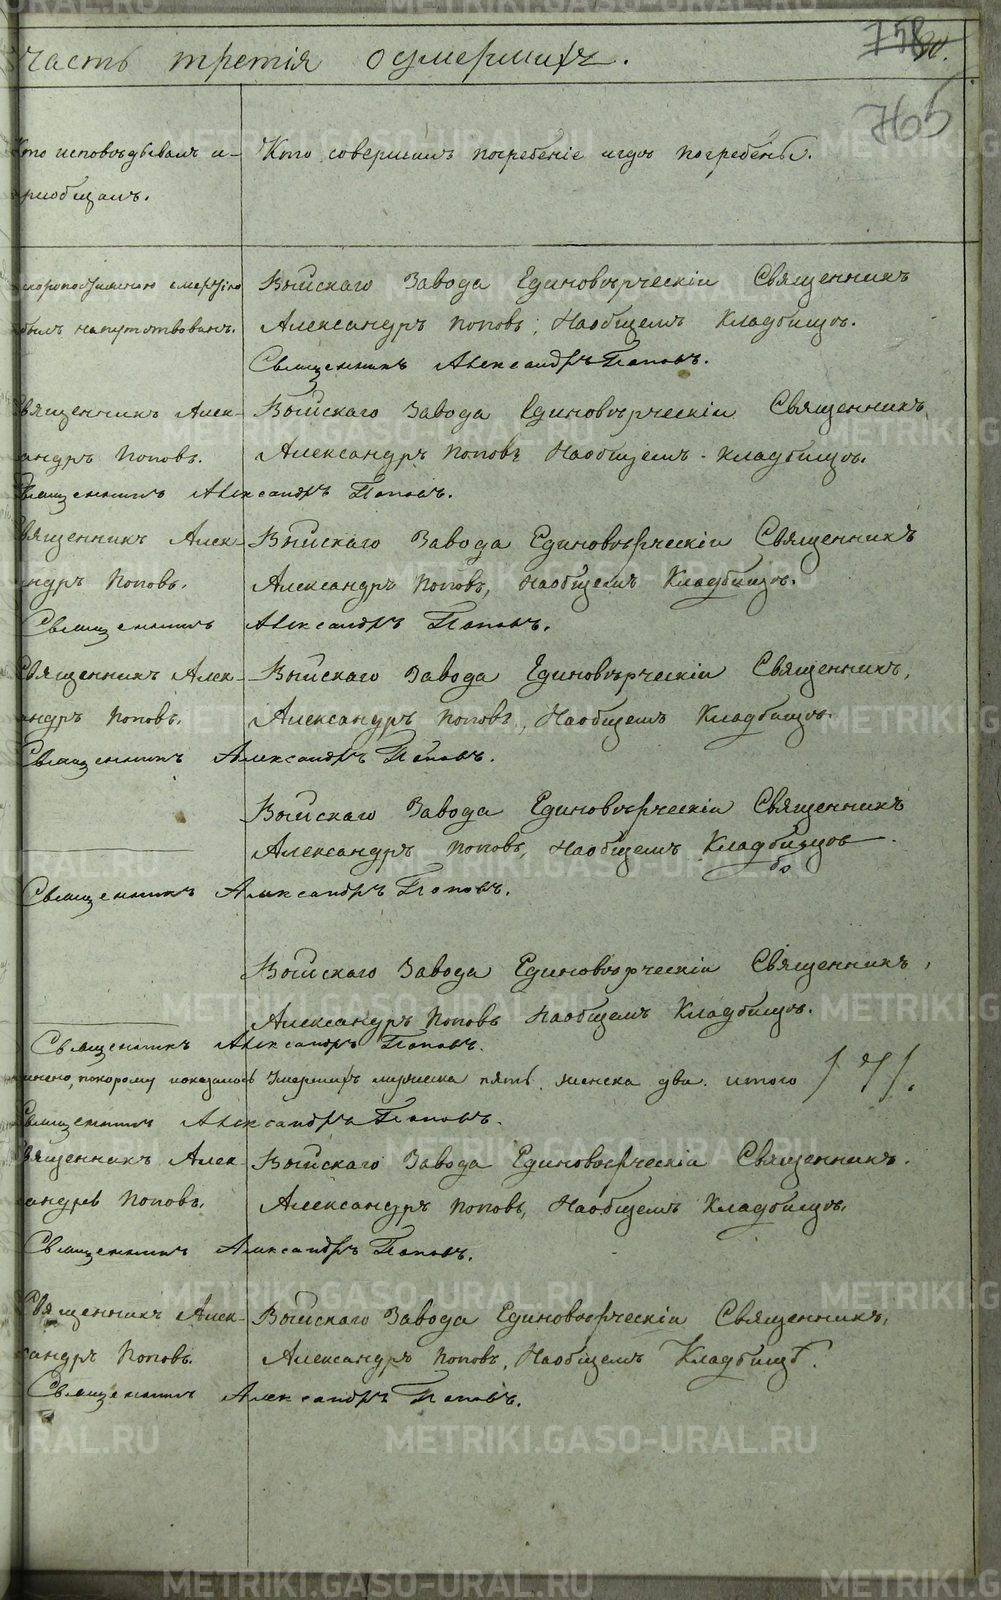 Часть третія оумершихъ.
758
765
Кто исповѣдывалъ и
Кто совершилъ погребеніе и гдѣ погребены.
приобщалъ.
скоропостижною смертію
Выйскаго Завода Единовѣрческій Священникъ
былъ напутствованъ.
Александръ Поповъ, На общемъ Кладбищѣ.
Священникъ Александръ Поповъ.
Священникъ Алек-
Выйскаго Завода Единовѣрческій Священникъ
андръ Поповъ.
Александръ Поповъ На общемъ Кладбищѣ.
Священникъ Александръ Поповъ.
Священникъ Алек-
Выйскаго Завода Единовѣрческій Священникъ
андръ Поповъ.
Александръ Поповъ, На общемъ Кладбищѣ.
Священникъ Александръ Поповъ.
Священникъ Алек-
Выйскаго Завода Единовѣрческій Священникъ,
андръ Поповъ.
Александръ Поповъ, На общемъ Кладбищѣ.
Священникъ Александръ Поповъ.
Выйскаго Завода Единовѣрческій Священникъ
Александръ Поповъ, На общемъ Кладбищѣ.
Священникъ Александръ Поповъ.
Выйскаго Завода Единовѣрческій Священникъ,
Александръ Поповъ На общемъ Кладбищѣ.
Священникъ Александръ Поповъ.
показалось Умершихъ мужеска пять, женска два. итого /7/.
Священникъ Александръ Поповъ.
Священникъ Алек-
Выйскаго Завода Единовѣрческій Священникъ.
андръ Поповъ.
Александръ Поповъ, На общемъ Кладбищѣ.
Священникъ Александръ Поповъ.
Священникъ Алек-
Выйскаго Завода Единовѣрческій Священникъ,
сандръ Поповъ.
Александръ Поповъ, На общемъ Кладбищѣ.
Священникъ Александръ Поповъ.
METRIKI.GASO-URAL.RU